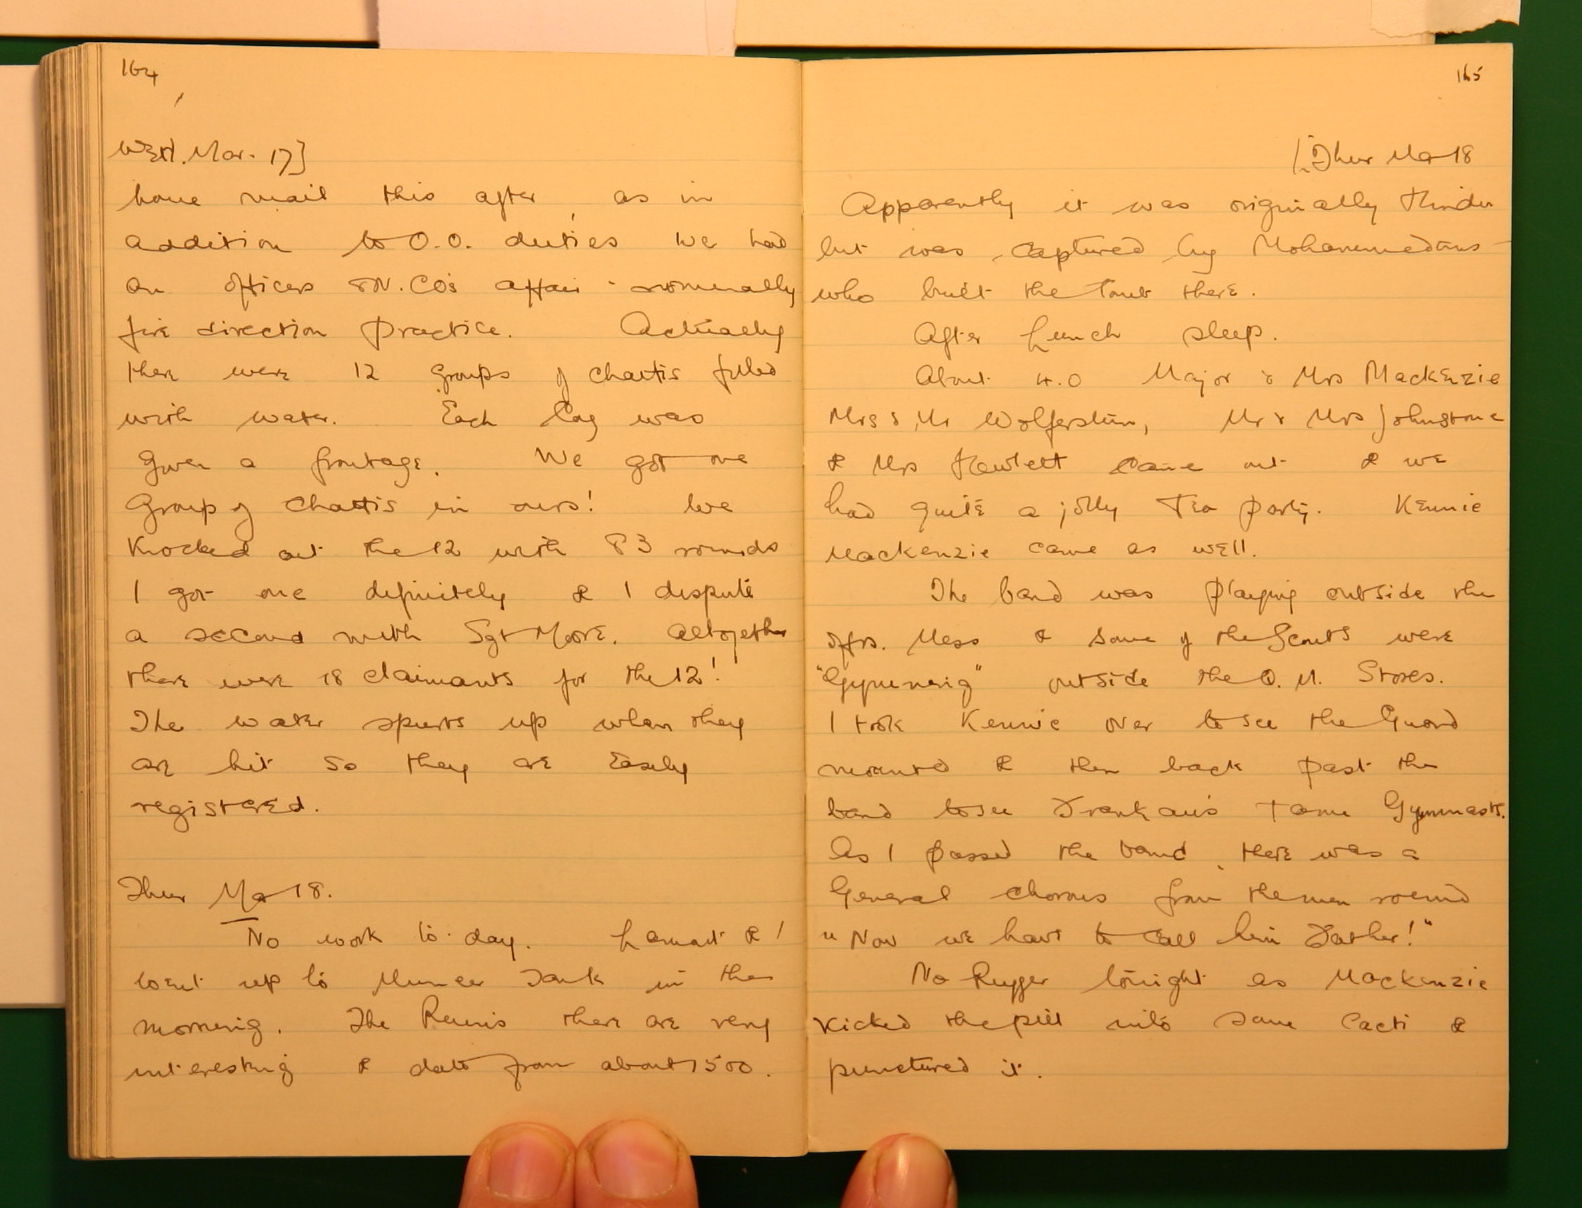 164
Wed. Mar. 17]
home mail this after, as in
addition to O.O. duties we had
an officers & N.CO's affair - nominally
fire direction practice. Actually
there were 12 groups of chattis filled
with water. Each Coy was
given a frontage. We got one
group of chattis in ours! We
knocked out the 12 with 83 rounds
I got one definitely & I dispute
a second with Sgt Moore. Altogether
there were 18 claimants for the 12!
The water spurts up when they
are hit so they are easily
registered.
Thur Mar 18.
No work to-day. Lamart & I
went up to Muneer Tank in the
morning. The Ruins there are very
interesting & date from about 1500.
165
[Thur Mar 18
Apparently it was originally Hindu
but was captured by Mohammedans -
who built the Tomb there.
After lunch sleep.
About 4.0 Major & Mrs Mackenzie
Mrs & Mr Wolferstan, Mr & Mrs Johnstone
& Mrs Hewlett came out & we
had quite a jolly Tea party. Kennie
Mackenzie came as well.
The band was playing outside the
Offrs. Mess & some of the Scouts were
"Gymning" outside the Q.M. Stores.
I took Kennie over to see the Guard
mounted & then back past the
band to see Frankau's tame Gymnasts.
As I passed the band, there was a
General chorus from the men round
"Now we have to call him Father!"
No Rugger tonight as Mackenzie
kicked the pill into some Cacti &
punctured it.